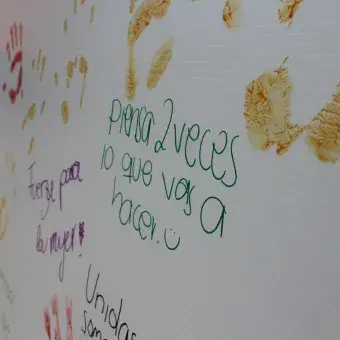 piensa 2 veces
lo que vas a
hacer.
Fuerza para
la mujer!
Unidas